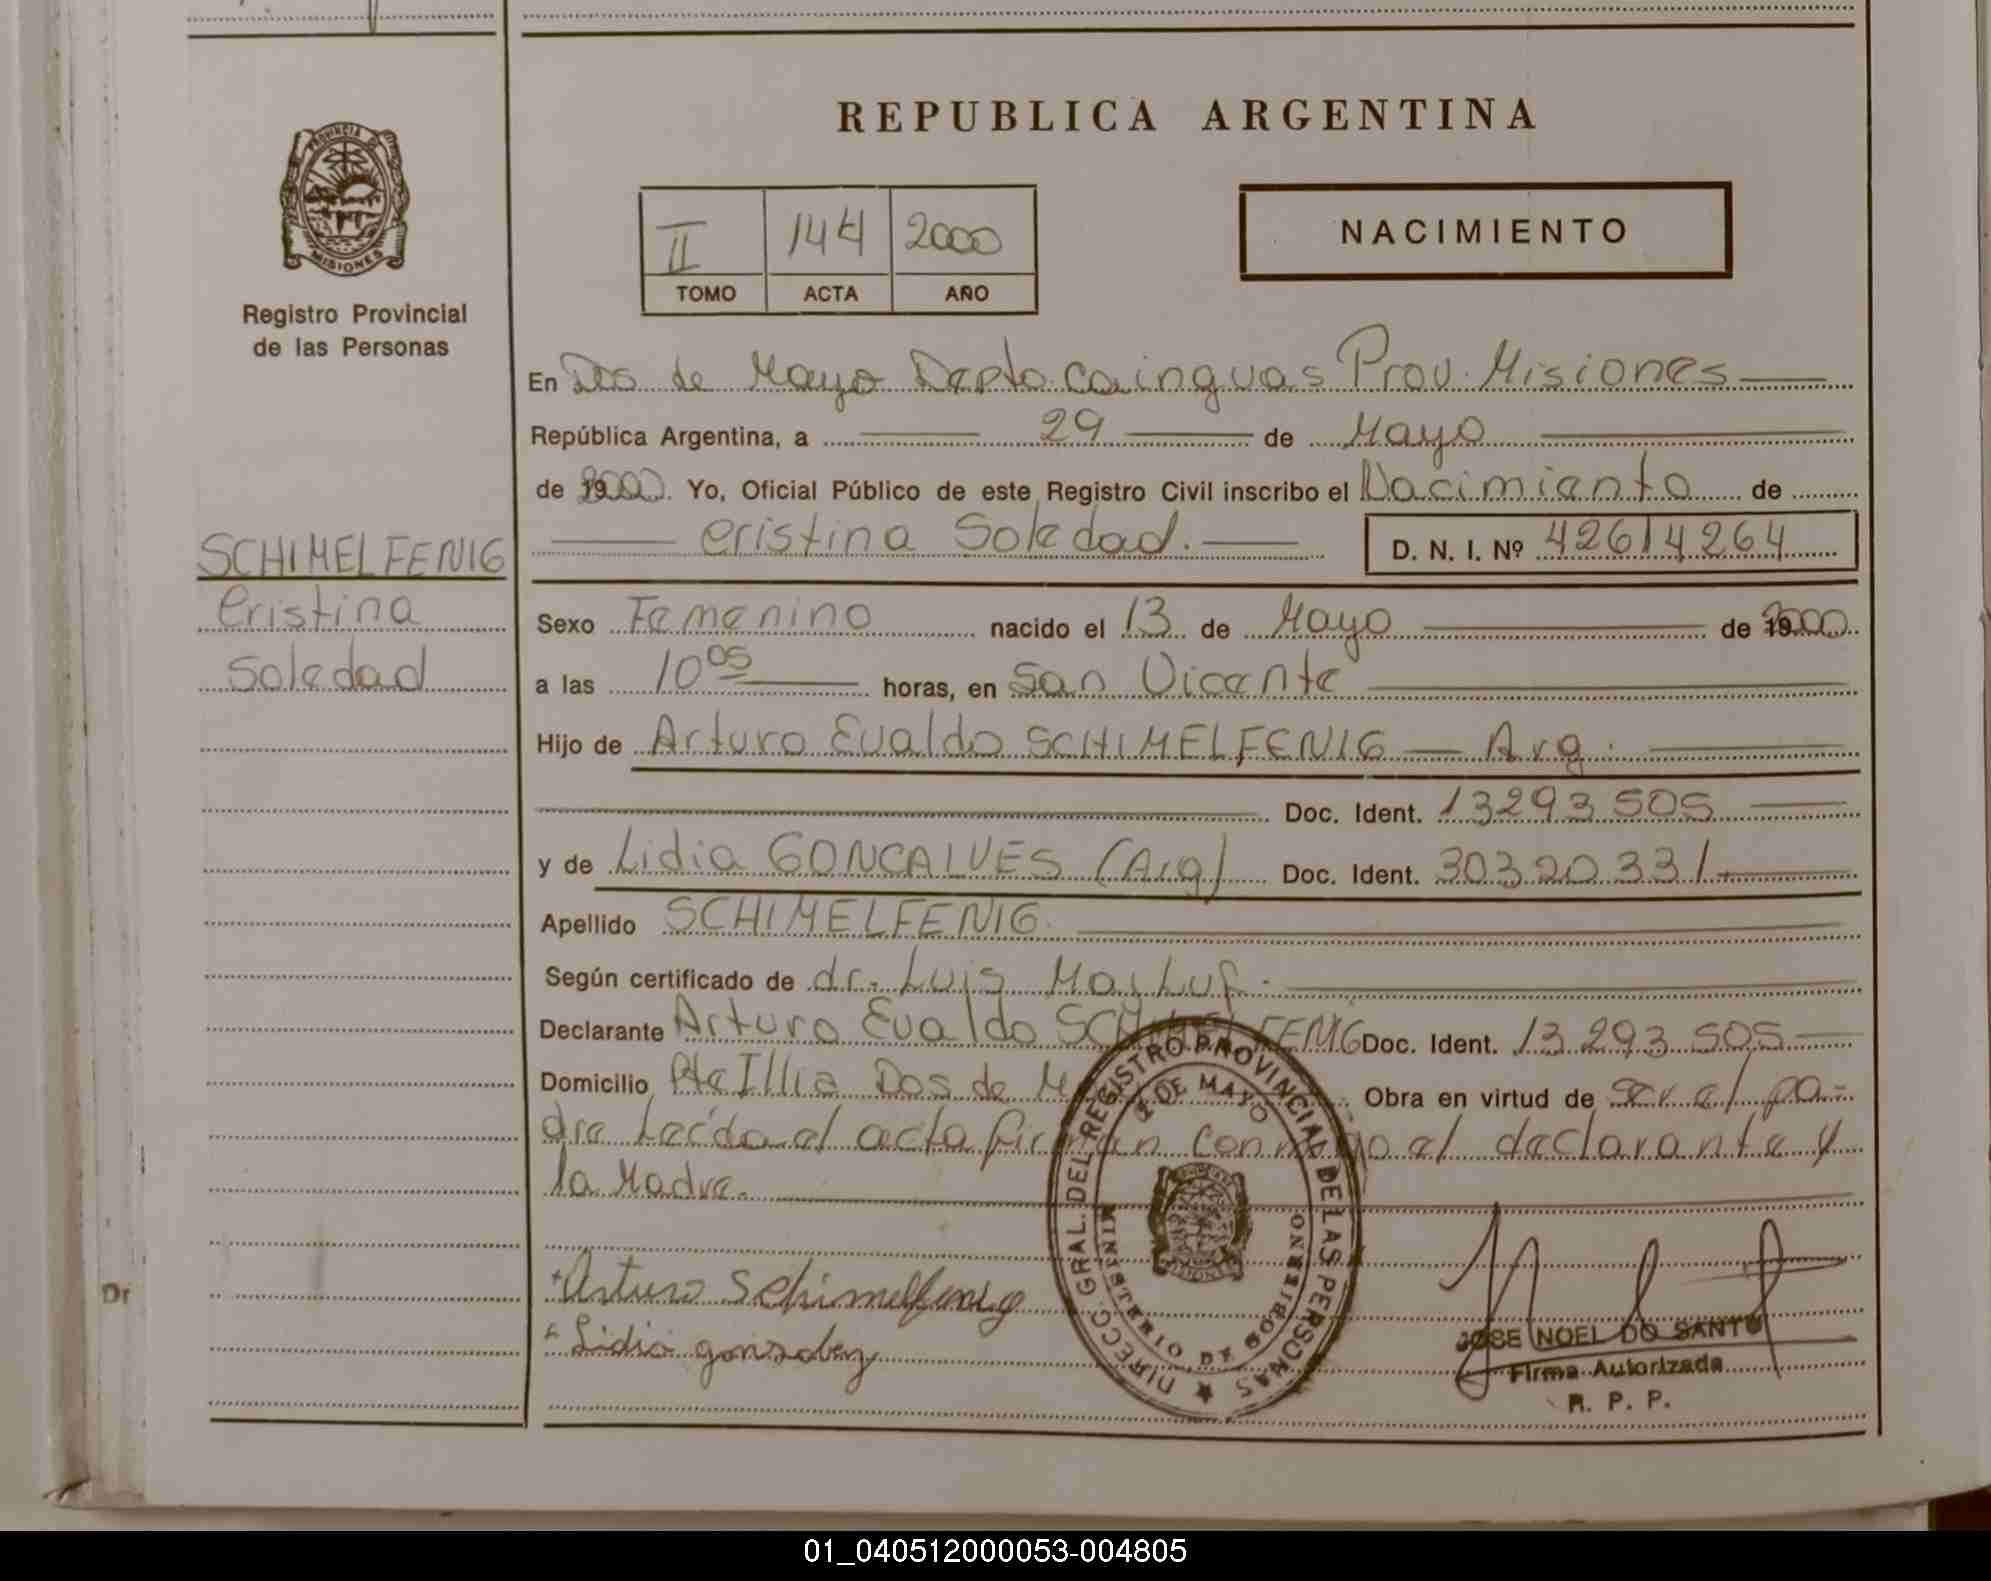 REPUBLICA ARGENTINA
PROVINCIA DE
MISIONES
Registro Provincial
de las Personas
II 144 2000
TOMO ACTA AÑO
NACIMIENTO
En Dos de Mayo Depto. Cainguas Prov. Misiones
República Argentina, a 29 de Mayo
de 2000. Yo, Oficial Público de este Registro Civil inscribo el Nacimiento de
Cristina Soledad. D. N. I. Nº 42614264
SCHIMELFENIG
Cristina
Soledad
Sexo Femenino nacido el 13 de Mayo de 2000
a las 10 05 horas, en San Vicente
Hijo de Arturo Evaldo SCHIMELFENIG Arg.
Doc. Ident. 13293505
y de Lidia GONCALVES (Arg) Doc. Ident. 30320331
Apellido SCHIMELFENIG.
Según certificado de dr. Luis
Declarante Arturo Evaldo SCHIMELFENIG Doc. Ident. 13.293.505
Domicilio Pte Illia Dos de Obra en virtud de ser el pa-
dre Leída el acta firman conmigo el declarante y
la Madre.
Arturo Schimelfenig
Lidia
DIRECC. GRAL. DEL REGISTRO PROVINCIAL DE LAS PERSONAS
2 DE MAYO
MINISTERIO DE GOBIERNO
MISIONES
JOSE NOEL DO SANTO
Firma Autorizada
R. P. P.
Dr
01_040512000053-004805